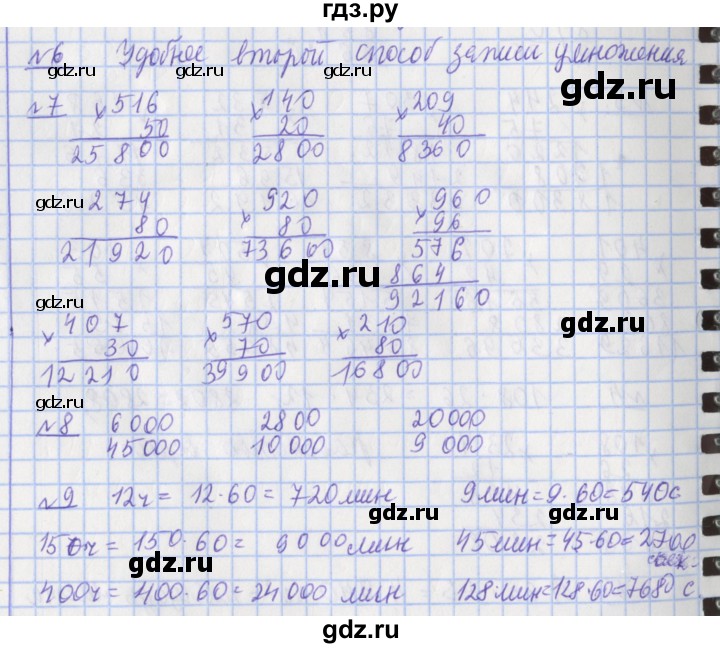 гдз.ру
№6 Удобнее второй способ записи умножения
gdz.ru gdz.ru gdz.ru
№7 × 516 × 140 × 209
50 20 40
25800 2800 8360
gdz.ru gdz.ru gdz.ru
274 × 920 × 960
80 80 96
21920 73600 576
gdz.ru
864
92160
gdz.ru
× 407 × 570 × 210
gdz.ru gdz.ru
30 70 80
12210 39900 16800
gdz.ru
№8 6000 2800 20000
gdz.ru gdz.ru
45000 10000 9000
№9 12ч = 12·60 = 720 мин 9 мин = 9·60 = 540 с
gdz.ru gdz.ru gdz.ru
150ч = 150·60 = 9000 мин 45 мин = 45·60 = 2700
сек.
400ч = 400·60 = 24000 мин 128 мин = 128·60 = 7680 с.
gdz.ru gdz.ru gdz.ru
gdz.ru